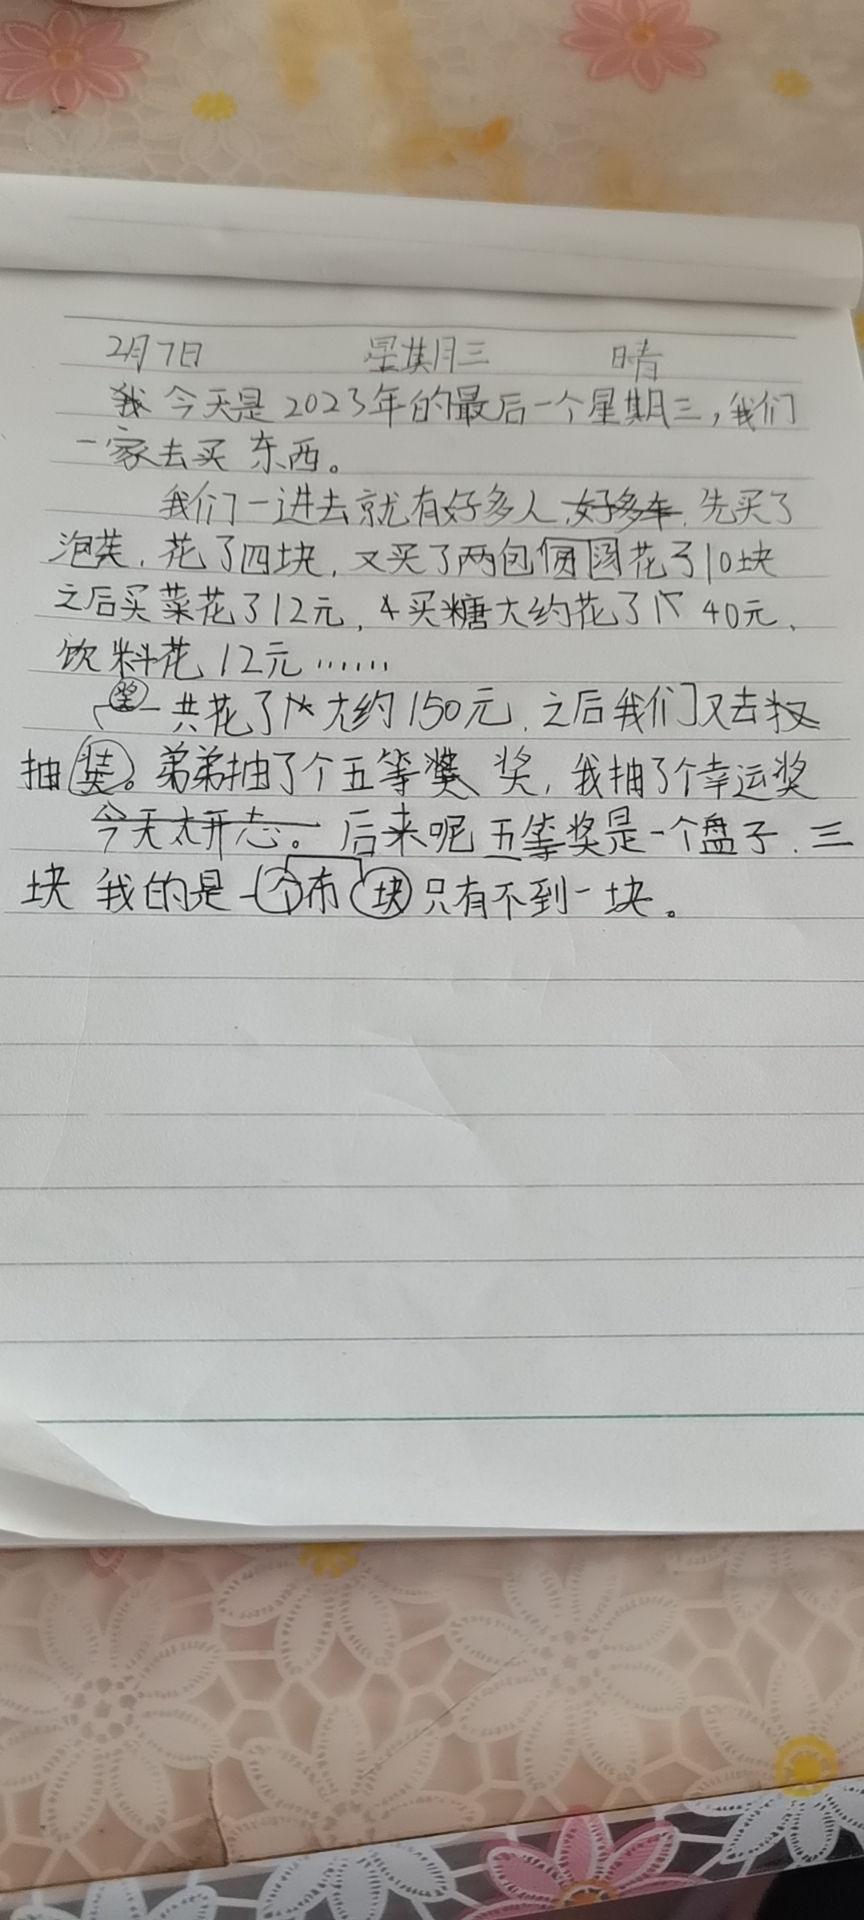 2月7日 星期三 晴
今天是2023年的最后一个星期三，我们
一家去买东西。
我们一进去就有好多人，好多车，先买了
泡芙，花了四块，又买了两包花了10块
之后买菜花了12元，买糖大约花了40元、
饮料花12元……
奖
一共花了大约150元，之后我们又去
抽奖。弟弟抽了个五等奖，我抽了个幸运奖
今天太开心。后来呢五等奖是一个盘子、三
块 我的是一个布块只有不到一块。